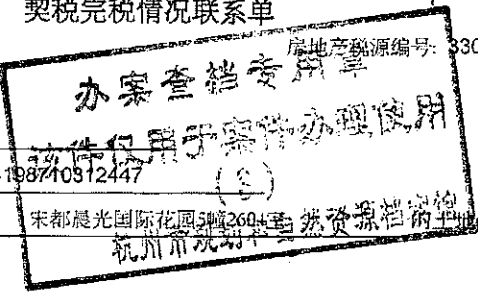 契税完税情况联系单
房地产税源编号: 330
办案查档专用章
该件仅用于案件办理使用
198710312447
(S)
宋都晨光国际花园5幢2604室
杭州市规划和自然资源档案馆